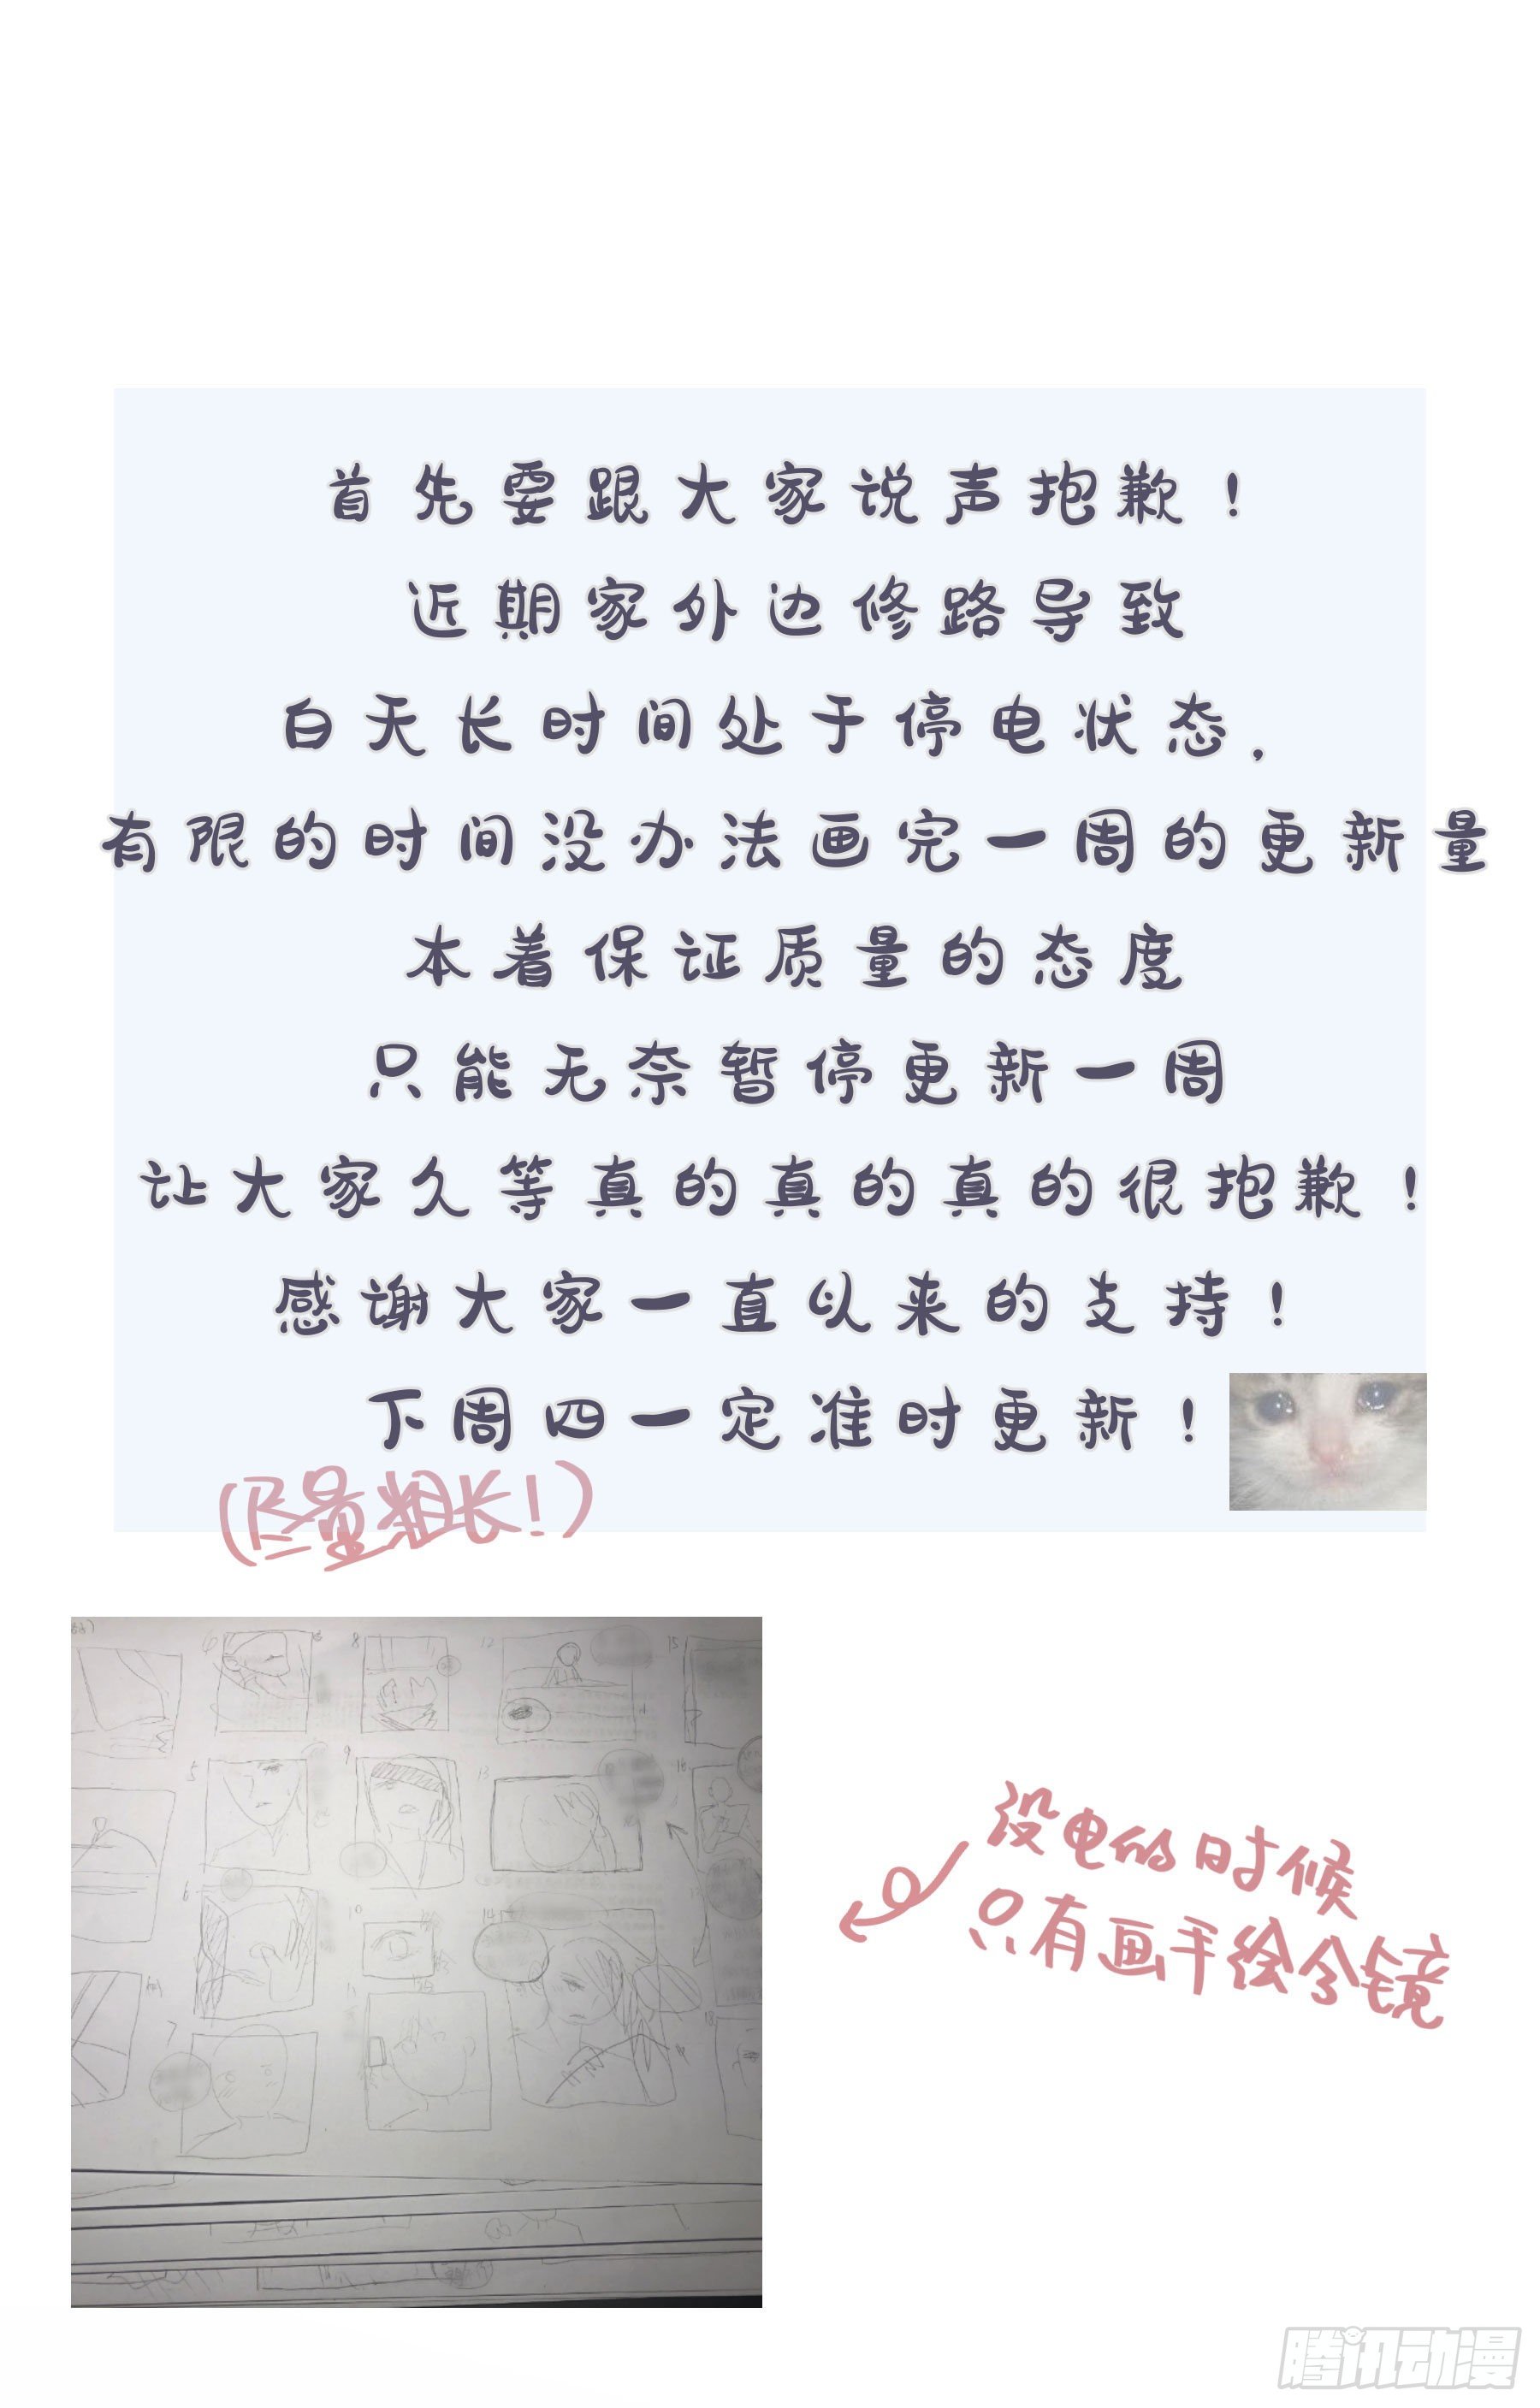 首先要跟大家说声抱歉！
近期家外边修路导致
白天长时间处于停电状态，
有限的时间没办法画完一周的更新量
本着保证质量的态度
只能无奈暂停更新一周
让大家久等真的真的真的很抱歉！
感谢大家一直以来的支持！
下周四一定准时更新！
（尽量粗长！）
8
12
15
5
9
13
16
6
10
14
11
7
18
没电的时候
只有画手绘分镜
腾讯动漫